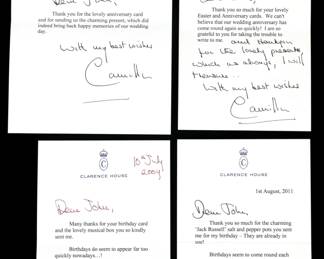 Dear John,
Thank you for the lovely anniversary card
and for sending us the charming present, which did
indeed bring back happy memories of our wedding
day.
With my best wishes
Camilla
Thank you so much for your lovely
Easter and Anniversary cards. We can't
believe that our wedding anniversary has
come round again so quickly! I am so
grateful to you for taking the trouble to
write to me. and thank you
for the lovely presents
which as always, I will
treasure..
With my best wishes
Camilla
C
CLARENCE HOUSE
10th July
2009
Dear John,
Many thanks for your birthday card
and the lovely musical box you so kindly
sent me.
Birthdays do seem to appear far too
quickly nowadays...!
C
CLARENCE HOUSE
1st August, 2011
Dear John,
Thank you so much for the charming
'Jack Russell' salt and pepper pots you sent
me for my birthday – They are already in
use!
Birthdays seem to come round each